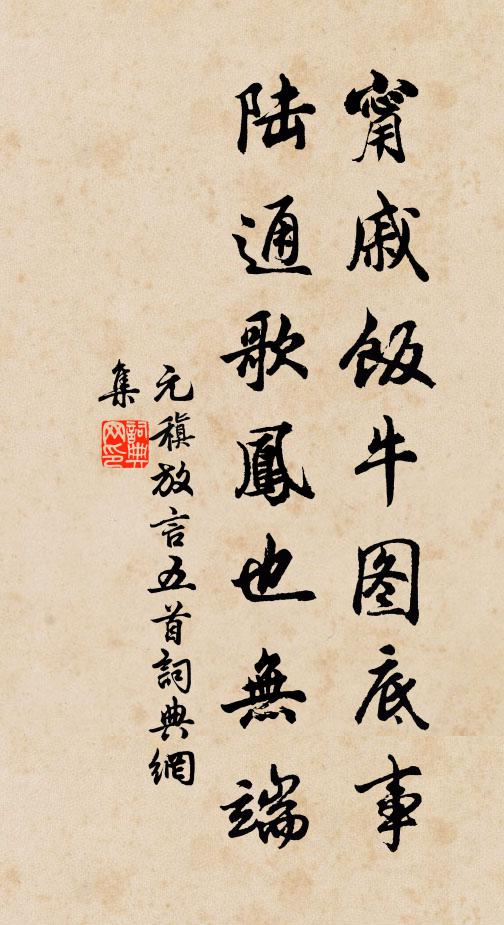 甯戚飯牛图底事
陸通歌鳳也無端
元稹放言五首詞典網
集
詞典網印